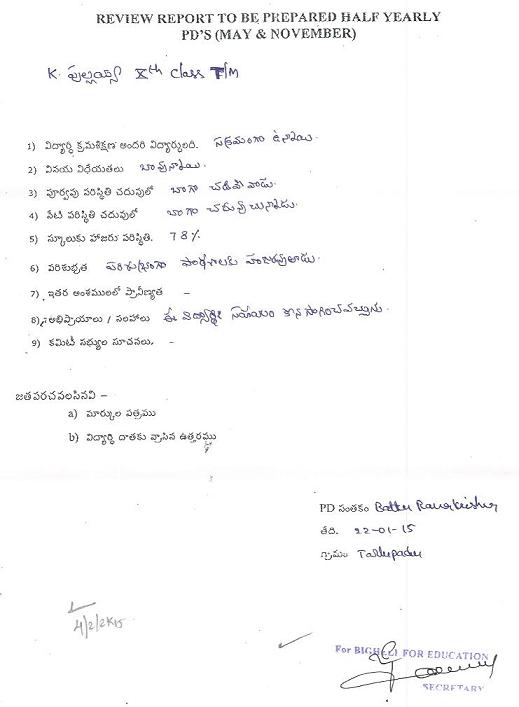 REVIEW REPORT TO BE PREPARED HALF YEARLY
PD'S (MAY & NOVEMBER)
K. పుల్లయ్య Xth Class T/M
1) విద్యార్థి క్రమశిక్షణ అందరి విద్యార్థులది. సక్రమంగా ఉన్నాయి.
2) వినయ విధేయతలు బావున్నాయి.
3) పూర్వపు పరిస్థితి చదువులో బాగా చదివేవాడు.
4) నేటి పరిస్థితి చదువులో బాగా చదువుచున్నాడు.
5) స్కూలుకు హాజరు పరిస్థితి. 78%
6) పరిశుభ్రత పరిశుభ్రంగా పాఠశాలకు హాజరవుతాడు.
7) ఇతర అంశములలో ప్రావీణ్యత –
8) అభిప్రాయాలు / సలహాలు ఈ విద్యార్థికి సహాయం కొనసాగించవచ్చును.
9) కమిటీ సభ్యుల సూచనలు. –
జతపరచవలసినవి –
a) మార్కుల పత్రము
b) విద్యార్థి దాతకు వ్రాసిన ఉత్తరము
PD సంతకం Battu Ramakrishna
తేది. 22-01-15
గ్రామం Tallupadu
4/2/2K15
For BIGHELP FOR EDUCATION
SECRETARY